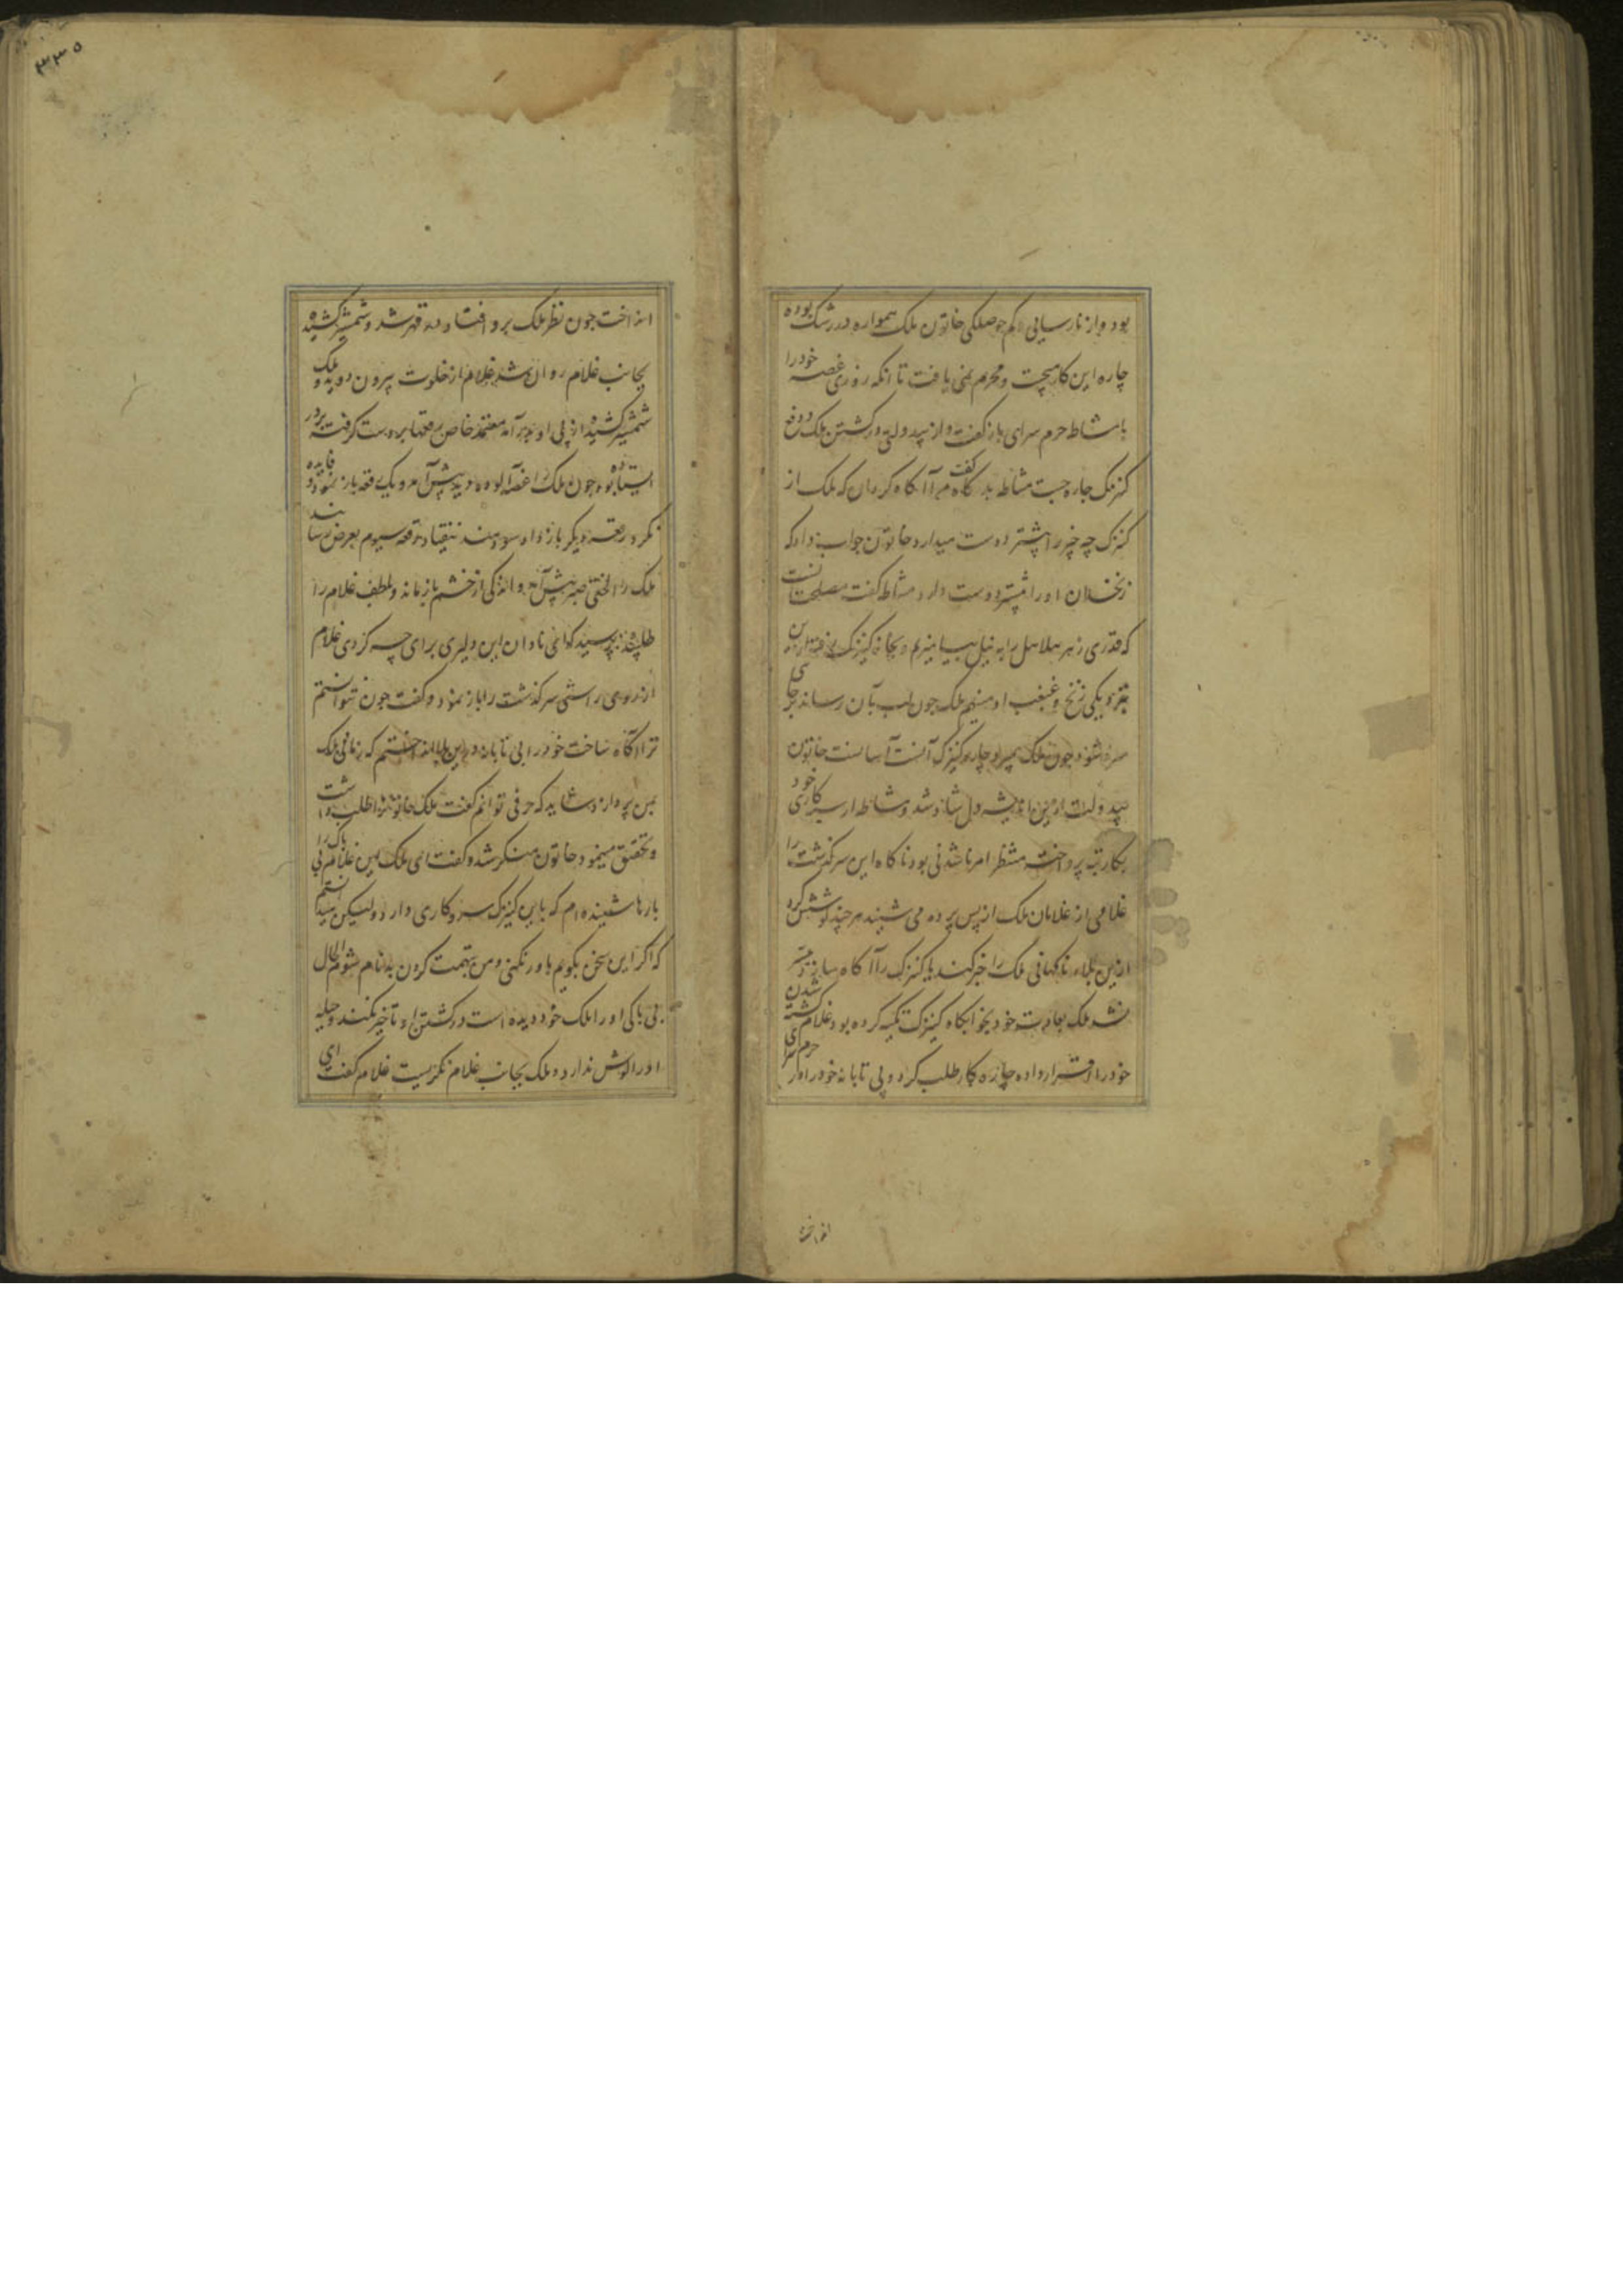 بود و از نارسایی و کم حوصلکی خاتون ملک همواره در رشک بوده
چاره این کار میجست و محرم نمی یافت تا انکه روزی غصه خود را
با مشاطه حرم سرای باز گفت و از بیدولتی در کشتن ملک و دفع
کنیزک چاره جست مشاطه بدکاه گفت مرا آگاه کردان که ملک از
کنیزک چه چیز را بیشتر دوست میدارد خاتون جواب داد که
زنخدان او را بیشتر دوست دارد مشاطه گفت مصلحت آنست
که قدری زهر هلاهل را به نیل بیامیزم و بخانه کنیزک رفته از آن
بنزدیکی زنخ و غبغب او منهم ملک چون لب بآن رساند بر جای
سرد شود چون ملک بمیرد چاره کنیزک آسانست خاتون
بیدولت ازین اندیشه دل شاد شد و مشاطه از سیه کاری خود
بکار پرداخته منتظر امر ناشدنی بود ناکاه این سرکذشت را
غلامی از غلامان ملک از پس پرده می شنید هر چند کوشش کرد
ازین بلاء ناکهانی ملک را خبر کند یا کنیزک را آگاه سازد میسر
نشد ملک بعادت خود بخوابکاه کنیزک تکیه کرده بود غلام کشته شدن
خود را قرار داده چاره کار طلب کرد و بی تابانه خود را در حرم سرای
انداخت
انداخت چون نظر ملک برو افتاد در قهر شد و شمشیر کشیده
بجانب غلام روان شد غلام از خلوت بیرون دوید و ملک
شمشیر کشیده از پی او برآمد معتمد خاص رقعها بر دست کرفته بر در
ایستاده بود چون ملک را غضب آلوده دید پیش آمد و یک رقعه باز نمود فایده
نکرد رقعه دیکر باز داد سودمند نیفتاد رقعه سیوم بعرض رسانید
ملک را لختی صبر پیش آمد و اندکی از خشم باز ماند و بلطف غلام را
طلبیده پرسید که ای نادان این دلیری برای چه کردی غلام
از روی راستی سرکذشت را باز نمود و گفت چون نتوانستم
ترا آگاه ساخت خود را بی تابانه درین بلا انداختم که زمانی ملک
بمن پردازد شاید که حرفی توانم گفت ملک خاتون را طلب داشت
و تحقیق مینمود خاتون منکر شد و گفت ای ملک این غلام بی باک را
بارها شنیده ام که با این کنیزک سر و کاری دارد و لیکن میدانستم
که اکر این سخن بگویم باور نکنی و من بتهمت کردن بدنام شوم الحال
بی باکی او را ملک خود دیده است در کشتن او تاخیر نکند و حیله
او را کوش ندارد و ملک بجانب غلام نکریست غلام گفت ای
۳۳۵